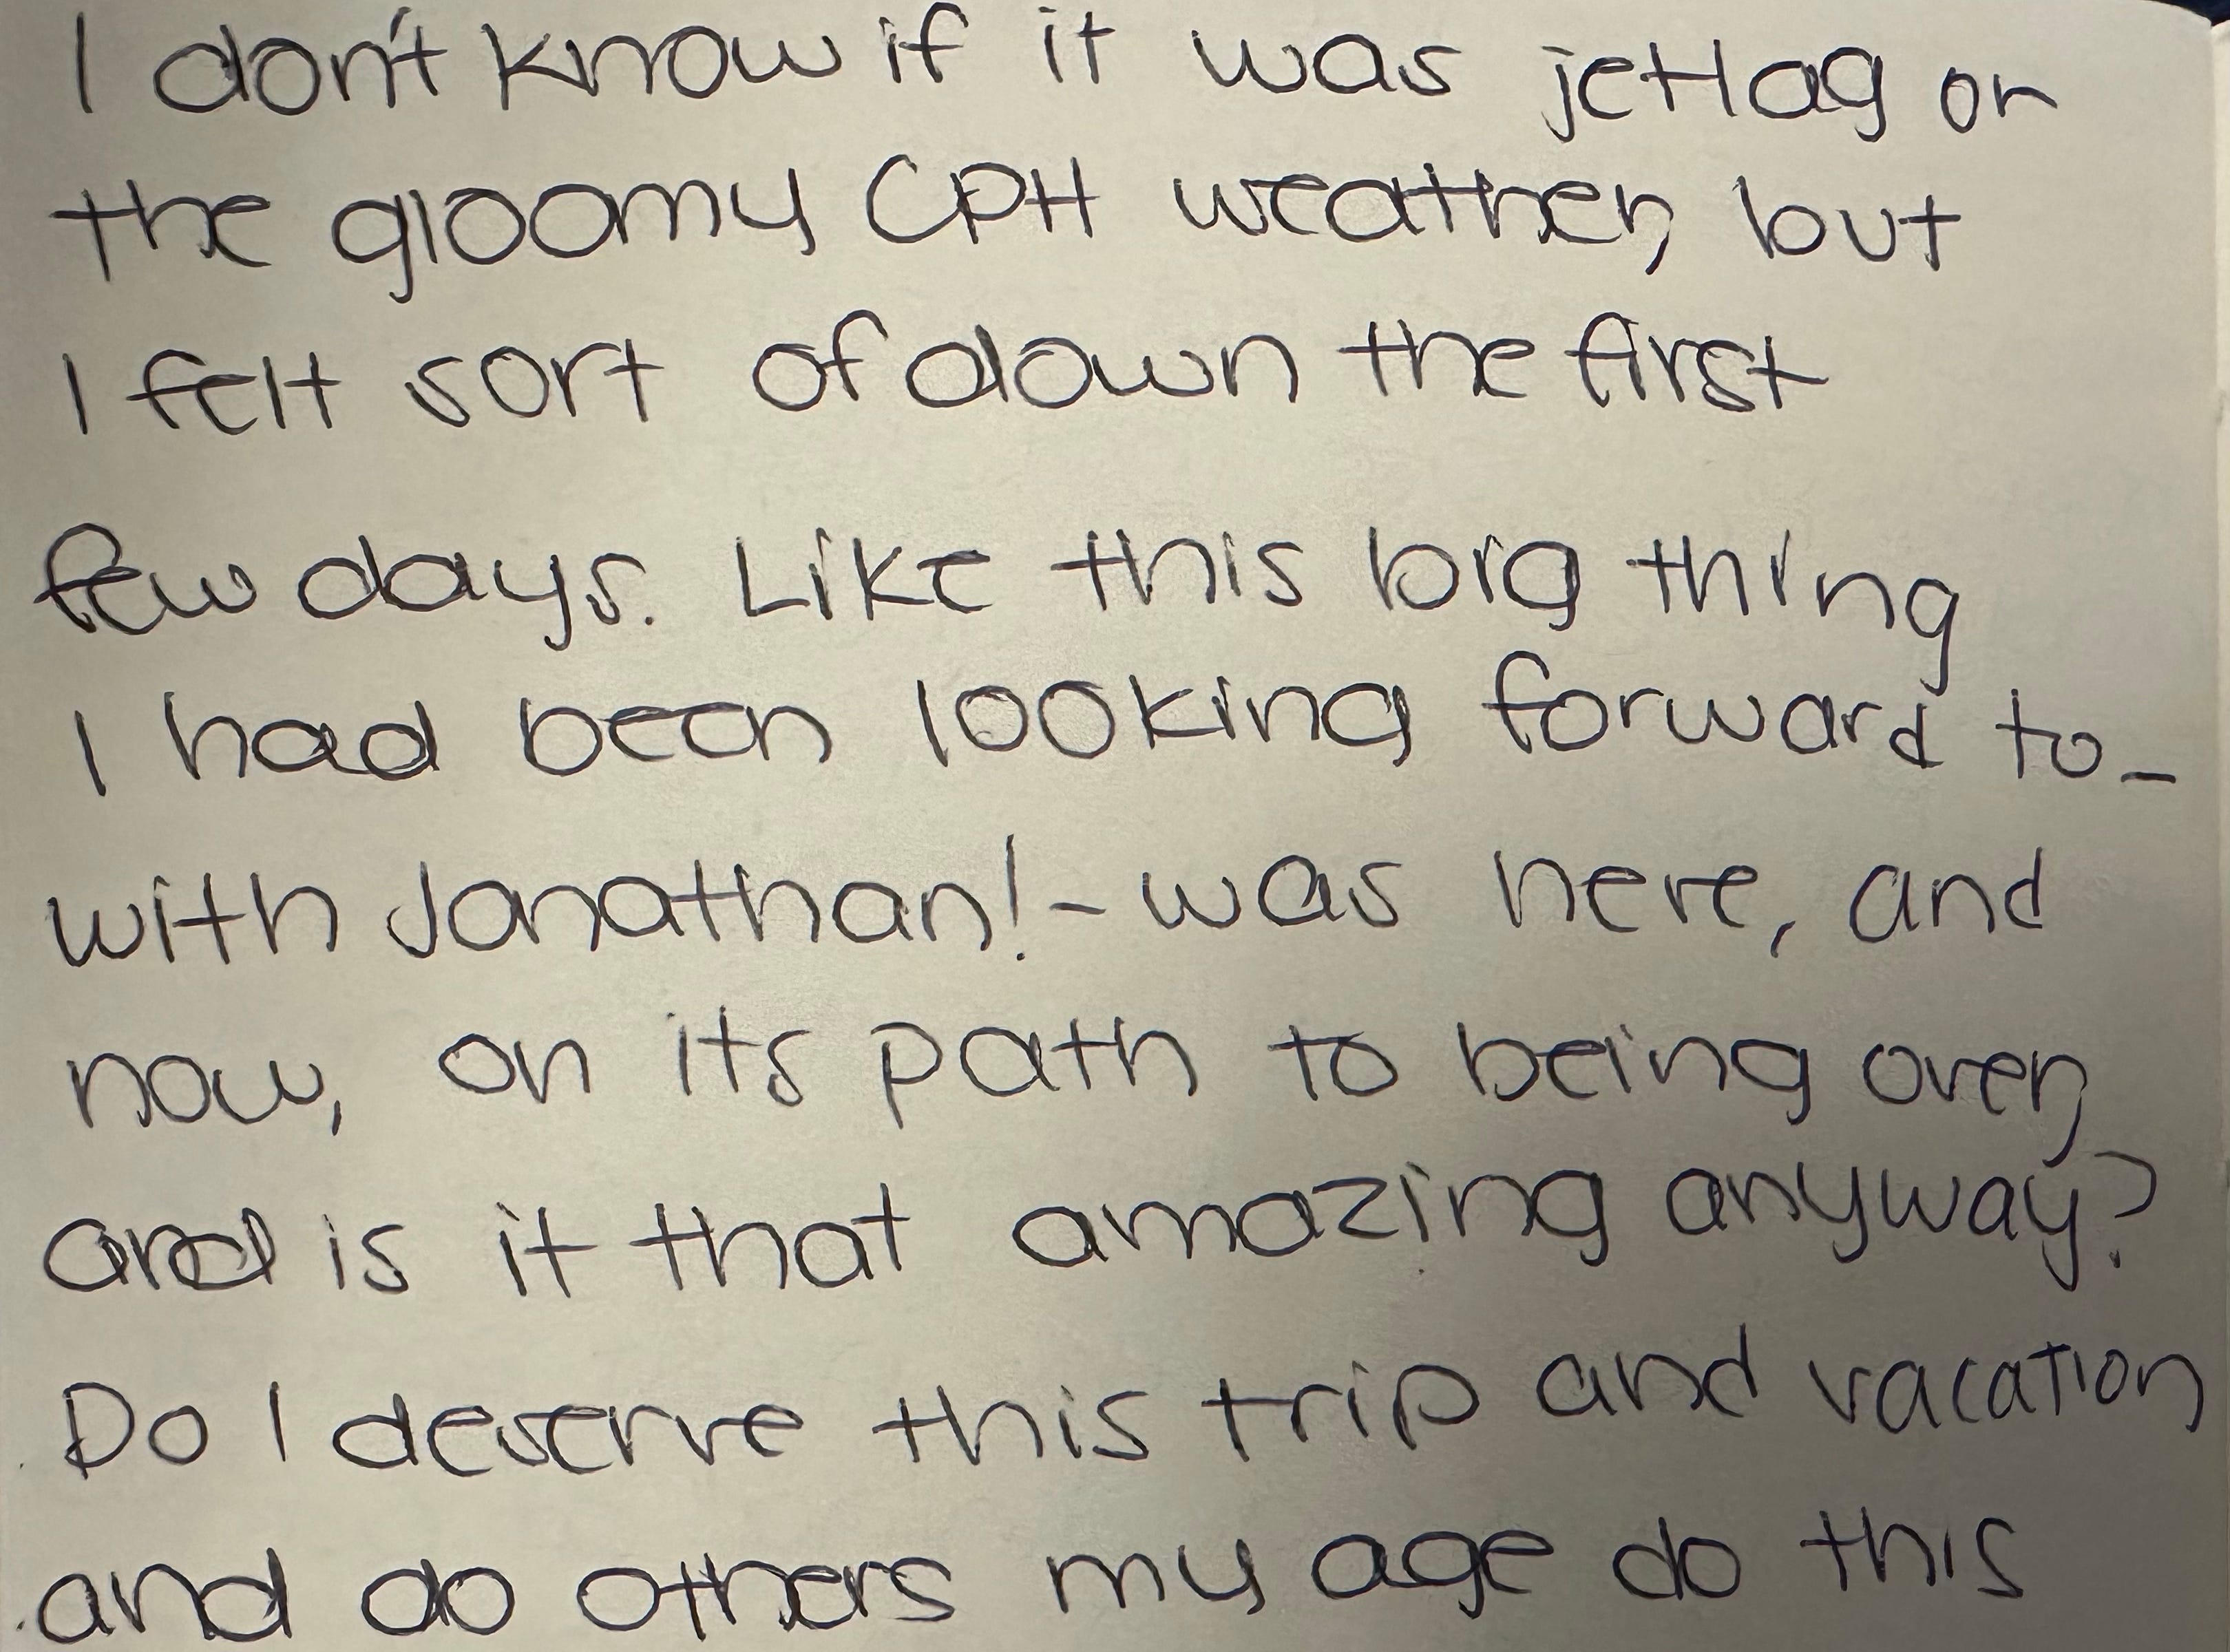 I don't know if it was jetlag or
the gloomy CPH weather, but
I felt sort of down the first
few days. Like this big thing
I had been looking forward to-
with Jonathan!- was here, and
now, on its path to being over,
and is it that amazing anyway?
Do I deserve this trip and vacation
and do others my age do this